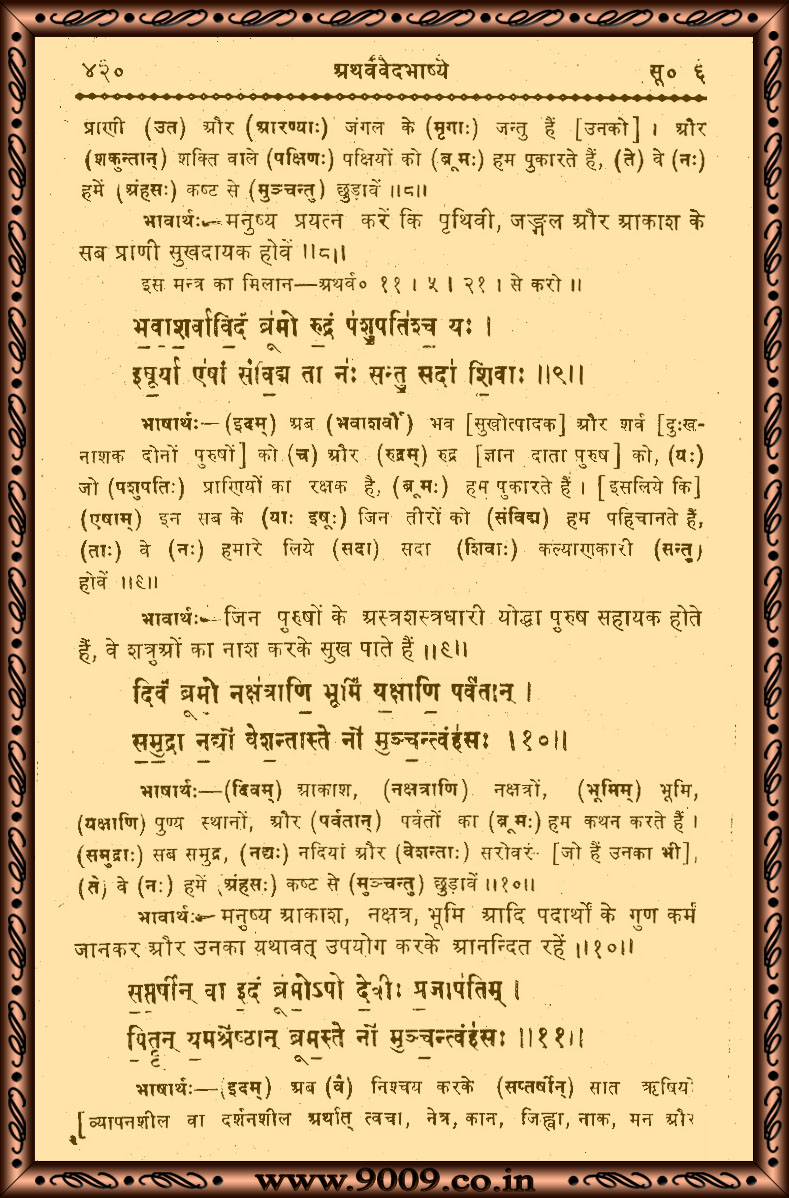 ४२० अथर्ववेदभाष्ये सू० ६
प्राणी (उत) और (आरण्याः) जंगल के (मृगाः) जन्तु हैं [उनको] । और
(शकुन्तान्) शक्ति वाले (पक्षिणः) पक्षियों को (ब्रूमः) हम पुकारते हैं, (ते) वे (नः)
हमें (अंहसः) कष्ट से (मुञ्चन्तु) छुड़ावें ॥८॥
भावार्थः—मनुष्य प्रयत्न करें कि पृथिवी, जङ्गल और आकाश के
सब प्राणी सुखदायक होवें ॥८॥
इस मन्त्र का मिलान—अथर्व० ११ । ५ । २१ । से करो ॥
भ॒वा॒श॒र्वावि॒दं ब्रू॑मो रु॒द्रं प॑शु॒पति॑श्च॒ यः ।
इषू॒र्या ए॑षां सं॑वि॒द्म ता नः॑ सन्तु॒ सदा॑ शि॒वाः ॥९॥
भाषार्थः—(इदम्) अब (भवाशर्वौ) भव [सुखोत्पादक] और शर्व [दुःख-
नाशक दोनों पुरुषों] को (च) और (रुद्रम्) रुद्र [ज्ञान दाता पुरुष] को, (यः)
जो (पशुपतिः) प्राणियों का रक्षक है, (ब्रूमः) हम पुकारते हैं । [इसलिये कि]
(एषाम्) इन सब के (याः इषूः) जिन तीरों को (संविद्म) हम पहिचानते हैं,
(ताः) वे (नः) हमारे लिये (सदा) सदा (शिवाः) कल्याणकारी (सन्तु)
होवें ॥९॥
भावार्थः—जिन पुरुषों के अस्त्रशस्त्रधारी योद्धा पुरुष सहायक होते
हैं, वे शत्रुओं का नाश करके सुख पाते हैं ॥९॥
दिवं॑ ब्रूमो॒ नक्ष॑त्राणि॒ भूमिं॑ य॒क्षाणि॒ पर्व॑तान् ।
स॒मु॒द्रा न॒द्यो॑ वेश॒न्तास्ते नो॑ मुञ्च॒न्त्वंह॑सः ॥१०॥
भाषार्थः—(दिवम्) आकाश, (नक्षत्राणि) नक्षत्रों, (भूमिम्) भूमि,
(यक्षाणि) पुण्य स्थानों, और (पर्वतान्) पर्वतों का (ब्रूमः) हम कथन करते हैं ।
(समुद्राः) सब समुद्र, (नद्यः) नदियां और (वेशन्ताः) सरोवर [जो हैं उनका भी],
(ते) वे (नः) हमें (अंहसः) कष्ट से (मुञ्चन्तु) छुड़ावें ॥१०॥
भावार्थः—मनुष्य आकाश, नक्षत्र, भूमि आदि पदार्थों के गुण कर्म
जानकर और उनका यथावत् उपयोग करके आनन्दित रहें ॥१०॥
स॒प्त॒र्षीन् वा इ॒दं ब्रू॑मो॒ऽपो दे॒वीः प्र॒जाप॑तिम् ।
पि॒तॄन् य॒मश्रे॑ष्ठान् ब्रूम॒स्ते नो॑ मुञ्च॒न्त्वंह॑सः ॥११॥
भाषार्थः—(इदम्) अब (वै) निश्चय करके (सप्तर्षीन्) सात ऋषियों
[व्यापनशील वा दर्शनशील अर्थात् त्वचा, नेत्र, कान, जिह्वा, नाक, मन और
www.9009.co.in